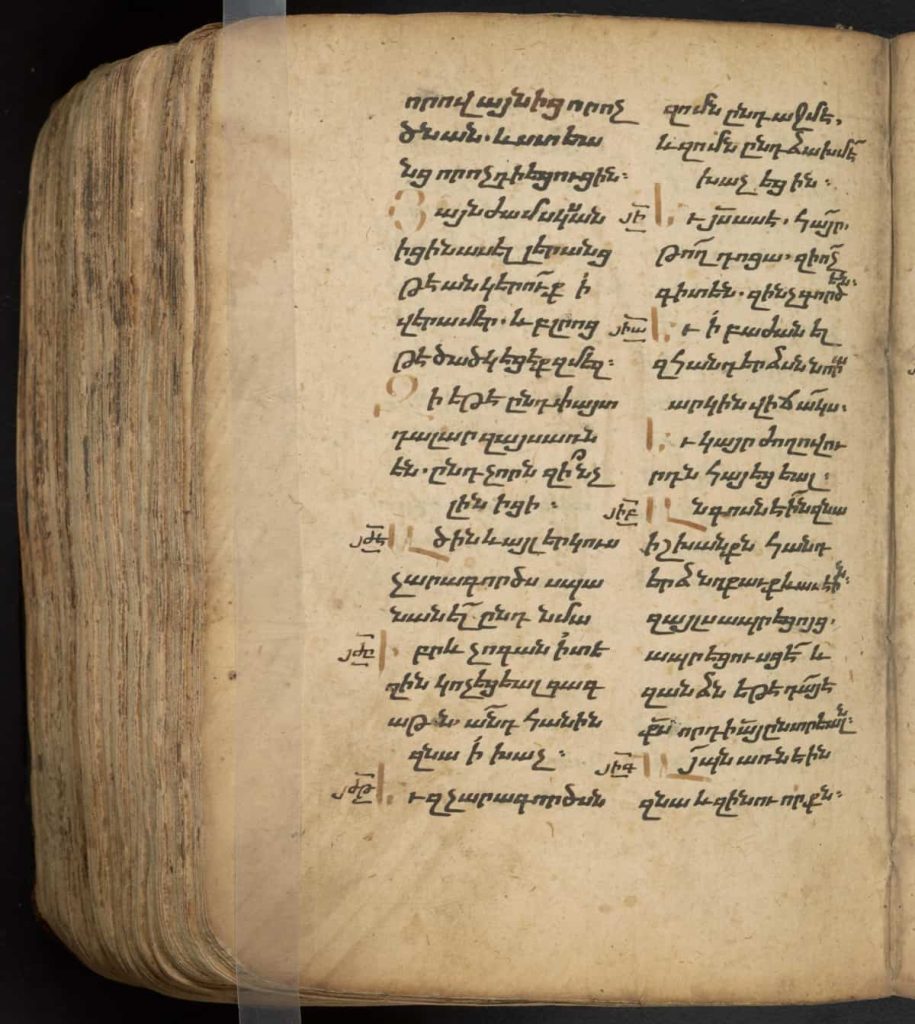 որովայնից որոչ
ծնան. և ստեա
նց որոչ դիեցուցին։
Յայնժամ սկսան
իցին ասել լերանց
թե անկերուք ի
վերա մեր. և բլրոց
թե ծածկեցէք զմեզ։
Զի եթե ընդ փայտ
դալար զայս առն
են. ընդ չորն զինչ
լինիցի։
յժե Ածին և այլ երկուս
չարագործս սպա
նանել ընդ նմա
յժը Իբրև չոգան ի տե
ղին կոչեցեալ գագ
աթն. անդ հանին
զնա ի խաչ։
յժթ Եւ զչարագործսն
զոմն ընդ աջմե,
և զոմն ընդ ձախմե
խաչեցին։
յի Եւ յս ասե. հայր,
թող դոցա. զի ոչ
գիտեն. զինչ գործեն։
յիա Եւ ի բաժանել
զհանդերձս նորա
արկին վիճակս.
Եւ կայր ժողովու
րդն հայեցեալ։
յիբ Անգոսնեին զնա
իշխանքն հանդ
երձ նոքաւք և ասեին։
զայլս ապրեցոյց.
ապրեցուսցե և
զանձն եթե դա է
քս որդի այ ընտրեալն։
յիգ Այպն առնեին
զնա և զինուորքն։